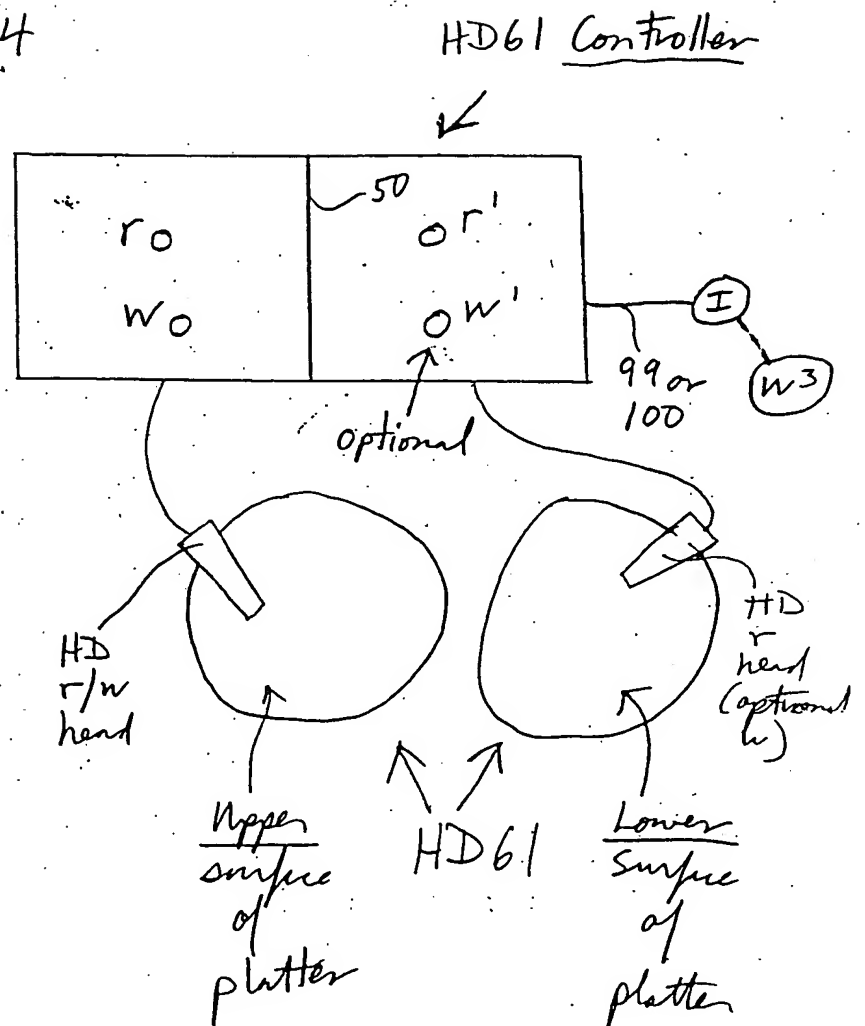 4
HD61 Controller
50
r
r'
w
w'
I
99 or
100
W3
optional
HD
r/w
head
HD
r
head
(optional
w)
Upper
surface
of
platter
HD61
Lower
surface
of
platter